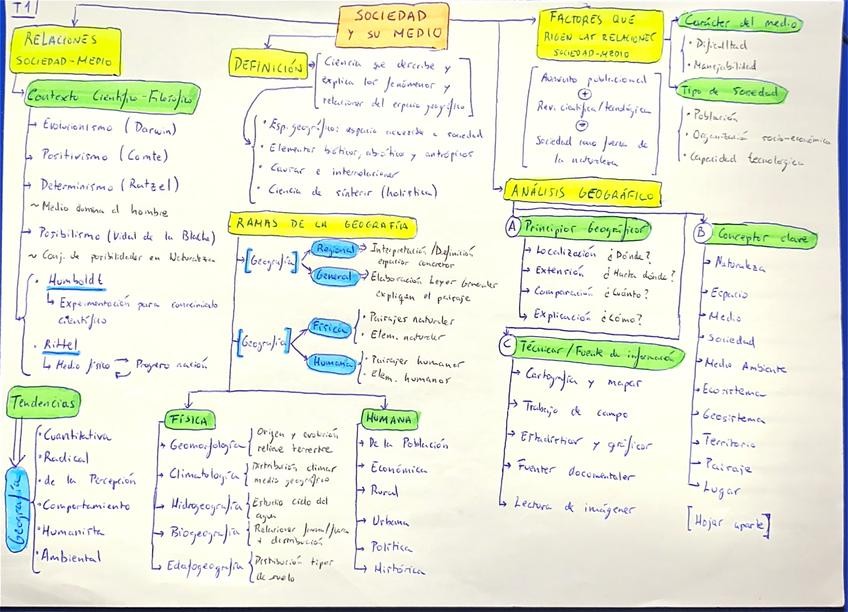 T1
SOCIEDAD
Y SU MEDIO
RELACIONES
SOCIEDAD-MEDIO
Contexto Científico-Filosófico
Evolucionismo (Darwin)
Positivismo (Comte)
Determinismo (Ratzel)
~ Medio domina al hombre
Posibilismo (Vidal de la Blache)
~ Conj. de posibilidades en Naturaleza
Humboldt
Experimentación para conocimiento
científico
Rittel
Medio físico Progreso nación
Tendencias
Geografía
Cuantitativa
Radical
de la Percepción
Comportamiento
Humanista
Ambiental
DEFINICIÓN
Ciencia que describe y
explica los fenómenos y
relaciones del espacio geográfico
Esp. geográfico: espacio accesible a sociedad
Elementos bióticos, abióticos y antrópicos
Causas e interrelaciones
Ciencia de síntesis (holística)
RAMAS DE LA GEOGRAFÍA
[Geografía]
Regional
Interpretación/Definición
espacios concretos
General
Elaboración Leyes Generales
expliquen el paisaje
[Geografía]
Física
Paisajes naturales
Elem. naturales
Humana
Paisajes humanos
Elem. humanos
FÍSICA
Geomorfología
Origen y evolución
relieve terrestre
Climatología
Distribución climas
medio geográfico
Hidrogeografía
Estudio ciclo del
agua
Biogeografía
+ distribución
Edafogeografía
Distribución tipos
de suelo
HUMANA
De la Población
Económica
Rural
Urbana
Política
Histórica
FACTORES QUE
RIGEN LAS RELACIONES
SOCIEDAD-MEDIO
Aumento poblacional
+
Rev. científica/tecnológica
Sociedad como fuerza de
la naturaleza
Carácter del medio
Dificultad
Manejabilidad
Tipo de Sociedad
Población
Organización socio-económica
Capacidad tecnológica
ANÁLISIS GEOGRÁFICO
A Principios Geográficos
Localización ¿Dónde?
Extensión ¿Hasta dónde?
Comparación ¿Cuánto?
Explicación ¿Cómo?
B Conceptos clave
Naturaleza
Espacio
Medio
Sociedad
Medio Ambiente
Ecosistema
Geosistema
Territorio
Paisaje
Lugar
[Hojas aparte]
C Técnicas/Fuente de información
Cartografía y mapas
Trabajo de campo
Estadísticas y gráficos
Fuentes documentales
Lectura de imágenes